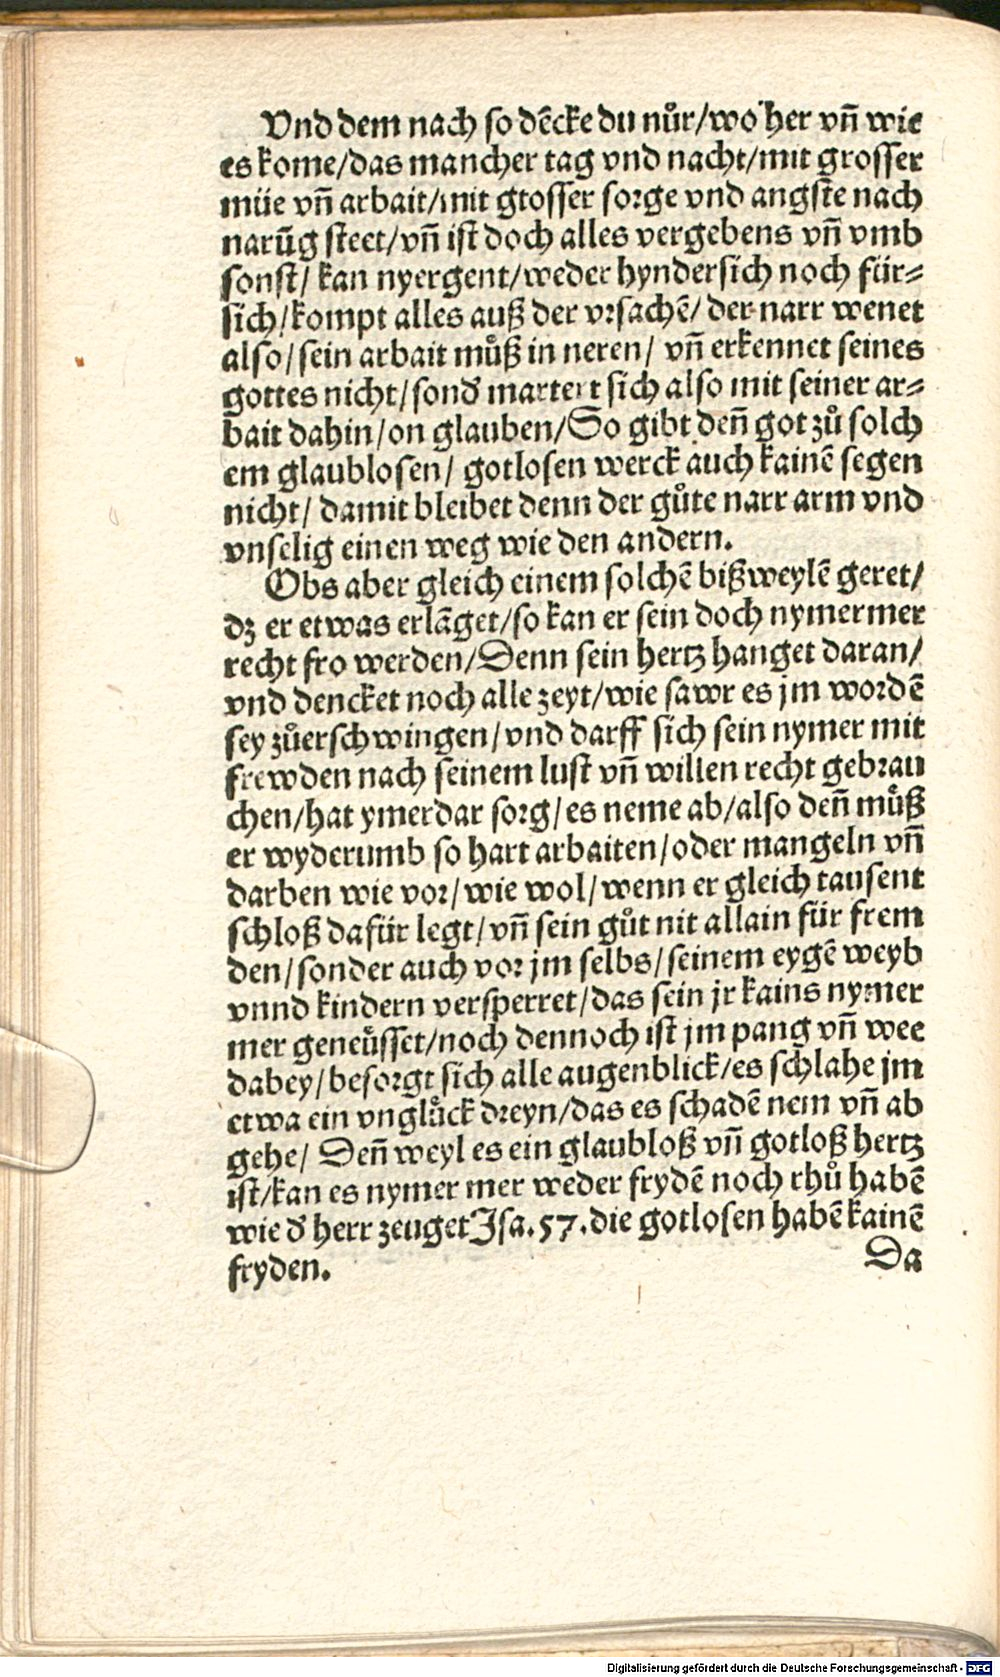 Vnd dem nach so dẽcke du nůr/wo her vñ wie
es kome/das mancher tag vnd nacht/mit grosser
müe vñ arbait/mit gtosser sorge vnd angste nach
narũg steet/vñ ist doch alles vergebens vñ vmb
sonst/ kan nyergent/weder hyndersich noch für⸗
sich/kompt alles auß der vrsachẽ/ der narr wenet
also/sein arbait můß in neren/ vñ erkennet seines
gottes nicht/sonđ martert sich also mit seiner ar⸗
bait dahin/on glauben/So gibt deñ got zů solch
em glaublosen/ gotlosen werck auch kainẽ segen
nicht/ damit bleibet denn der gůte narr arm vnd
vnselig einen weg wie den andern.
Obs aber gleich einem solchẽ bißweylẽ geret/
dz er etwas erlãget/so kan er sein doch nymermer
recht fro werden/Denn sein hertz hanget daran/
vnd dencket noch alle zeyt/wie sawr es jm wordẽ
sey zůerschwingen/vnd darff sich sein nymer mit
frewden nach seinem lust vñ willen recht gebrau
chen/hat ymerdar sorg/es neme ab/also deñ můß
er wyderumb so hart arbaiten/oder mangeln vñ
darben wie vor/wie wol/wenn er gleich tausent
schloß dafür legt/vñ sein gůt nit allain für frem
den/sonder auch vor jm selbs/seinem eygẽ weyb
vnnd kindern versperret/das sein jr kains nymer
mer geneüsset/noch dennoch ist jm pang vñ wee
dabey/besorgt sich alle augenblick/es schlahe jm
etwa ein vnglůck dreyn/das es schadẽ nem vñ ab
gehe/ Deñ weyl es ein glaubloß vñ gotloß hertz
ist/kan es nymer mer weder frydẽ noch rhů habẽ
wie đ herr zeuget Isa.57.die gotlosen habẽ kainẽ
fryden.
Da
Digitalisierung gefördert durch die Deutsche Forschungsgemeinschaft - DFG